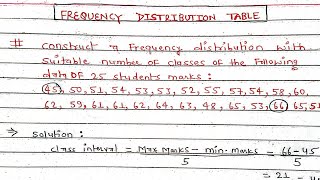 FREQUENCY DISTRIBUTION TABLE
# Construct a Frequency distribution with
suitable number of classes of the following
data OF 25 students marks :
45, 50, 51, 54, 53, 53, 52, 55, 57, 54, 58, 60,
62, 59, 61, 61, 62, 64, 63, 48, 65, 53, 66, 65, 5
⇒ Solution :
Class interval = Max Marks - min. marks = 66-45
5 5
= 21